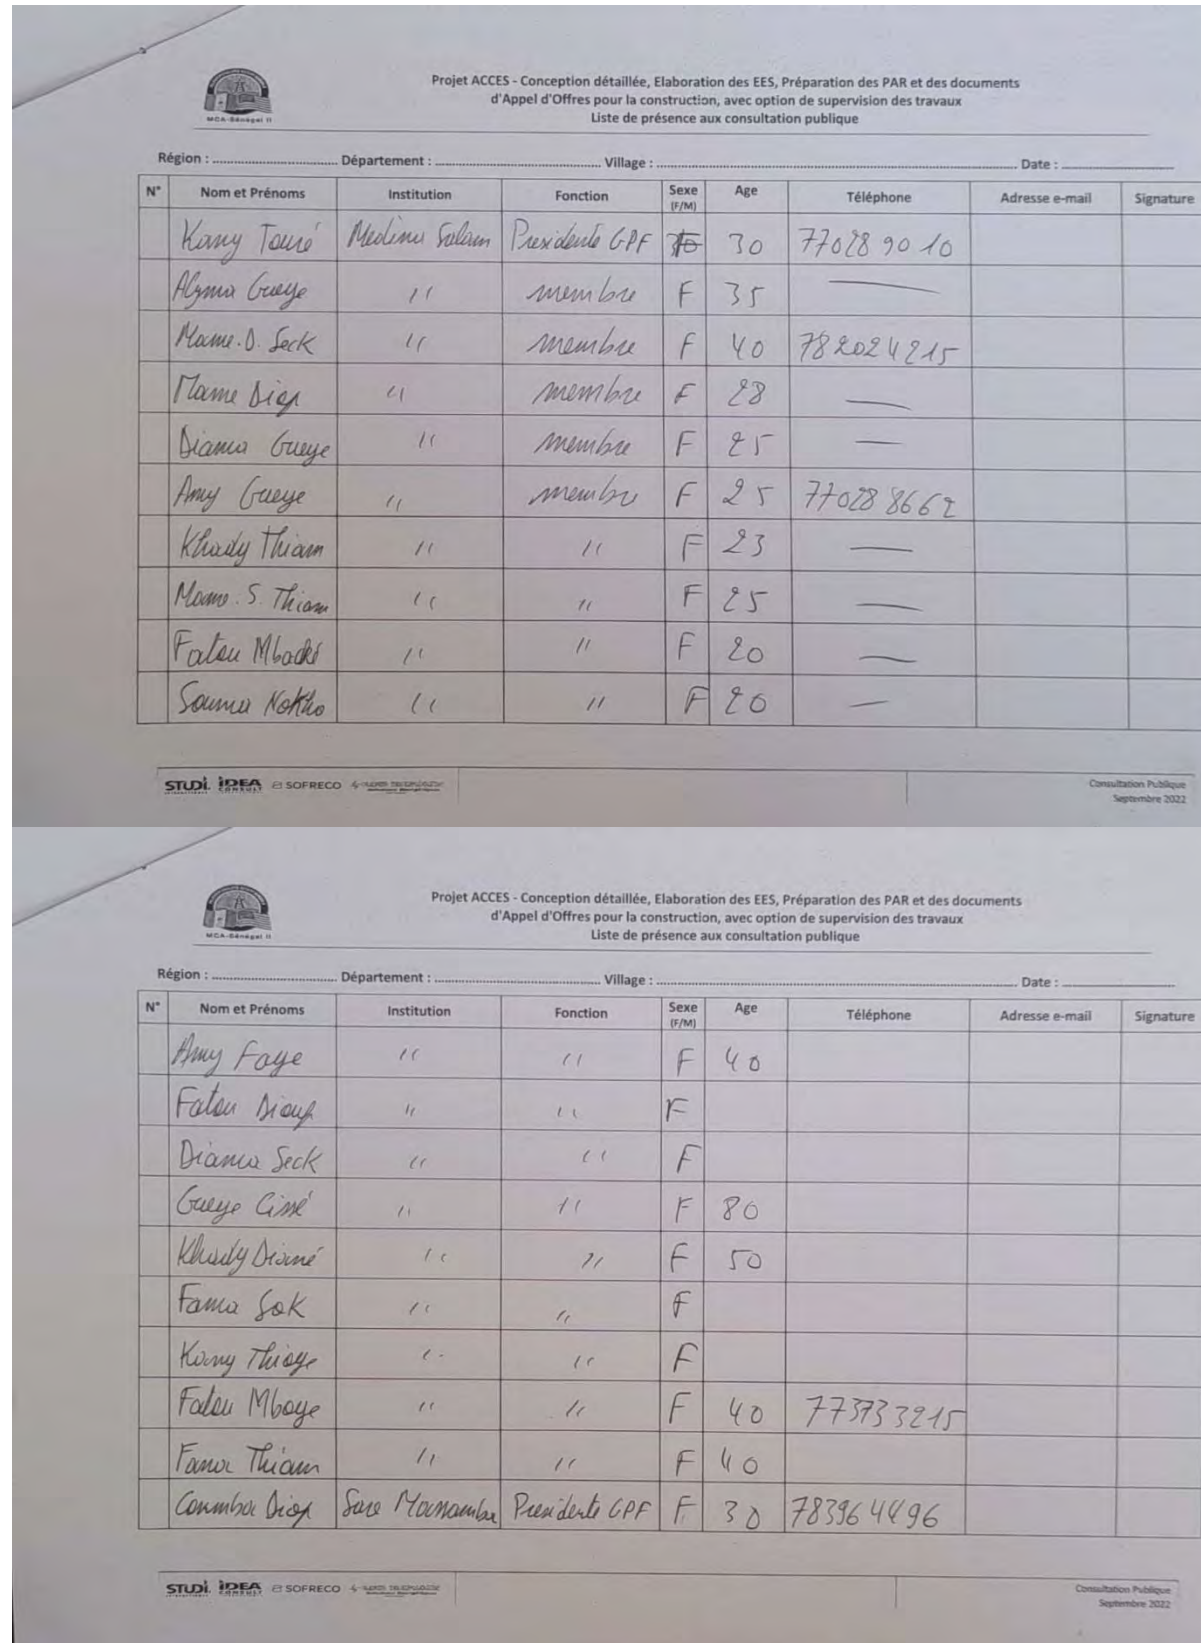 MCA-Sénégal II
Projet ACCES - Conception détaillée, Elaboration des EES, Préparation des PAR et des documents
d'Appel d'Offres pour la construction, avec option de supervision des travaux
Liste de présence aux consultation publique
Région : Département : Village : Date :
N° Nom et Prénoms Institution Fonction Sexe (F/M) Age Téléphone Adresse e-mail Signature
Kany Touré Medina Salam Presidente GPF 30 77028 90 10
Gueye " membre F 35 —
Mame. D. Seck " membre F 40 782024215
Mame Diop " membre F 28 —
Diama Gueye " membre F 25 —
Amy Gueye " membre F 25 77028 8662
Khady Thiam " " F 23 —
Mame. S. Thiam " " F 25 —
Fatou Mbacké " " F 20 —
Souma Nokho " " F 20 —
STUDI IDEA CONSULT SOFRECO
Consultation Publique
Septembre 2022
MCA-Sénégal II
Projet ACCES - Conception détaillée, Elaboration des EES, Préparation des PAR et des documents
d'Appel d'Offres pour la construction, avec option de supervision des travaux
Liste de présence aux consultation publique
Région : Département : Village : Date :
N° Nom et Prénoms Institution Fonction Sexe (F/M) Age Téléphone Adresse e-mail Signature
Amy Faye " " F 40
Fatou Diouf " " F
Diama Seck " " F
Gueye Cissé " " F 80
Khady Diamé " " F 50
Fama Sok " " F
Kany Thioye " " F
Fatou Mboye " " F 40 773733215
Fama Thiam " " F 40
Coumba Diop Sare Mamamba Presidente GPF F 30 783964496
STUDI IDEA CONSULT SOFRECO
Consultation Publique
Septembre 2022